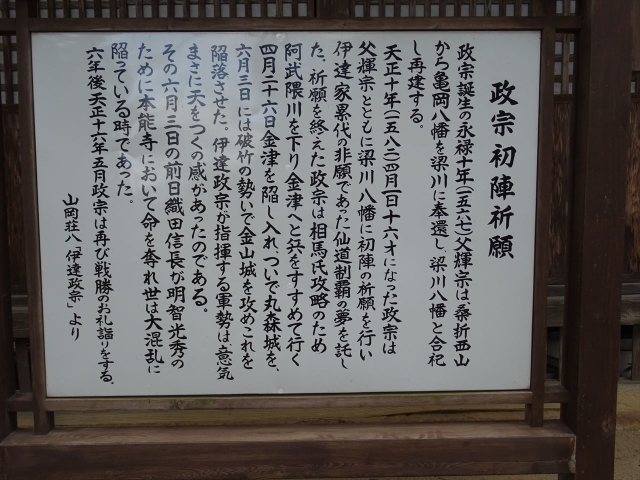 政宗初陣祈願
政宗誕生の永禄十年(一五六七)父輝宗は、桑折西山
から亀岡八幡を梁川に奉還し、梁川八幡と合祀
し再建する。
天正十年(一五八二)四月一日十六才になった政宗は
父輝宗とともに梁川八幡に初陣の祈願を行い
伊達家累代の非願であった仙道制覇の夢を託し
た。祈願を終えた政宗は相馬氏攻略のため
阿武隈川を下り金津へと兵をすすめて行く
四月二十六日金津を陥し入れ、ついで丸森城を、
六月三日には破竹の勢いで金山城を攻めこれを
陥落させた。伊達政宗が指揮する軍勢は、意気
まさに天をつくの感があったのである。
その六月三日の前日織田信長が明智光秀の
ために本能寺において命を奪れ世は大混乱に
陥っている時であった。
六年後天正十六年五月政宗は再び戦勝のお礼詣りをする.
山岡荘八「伊達政宗」より